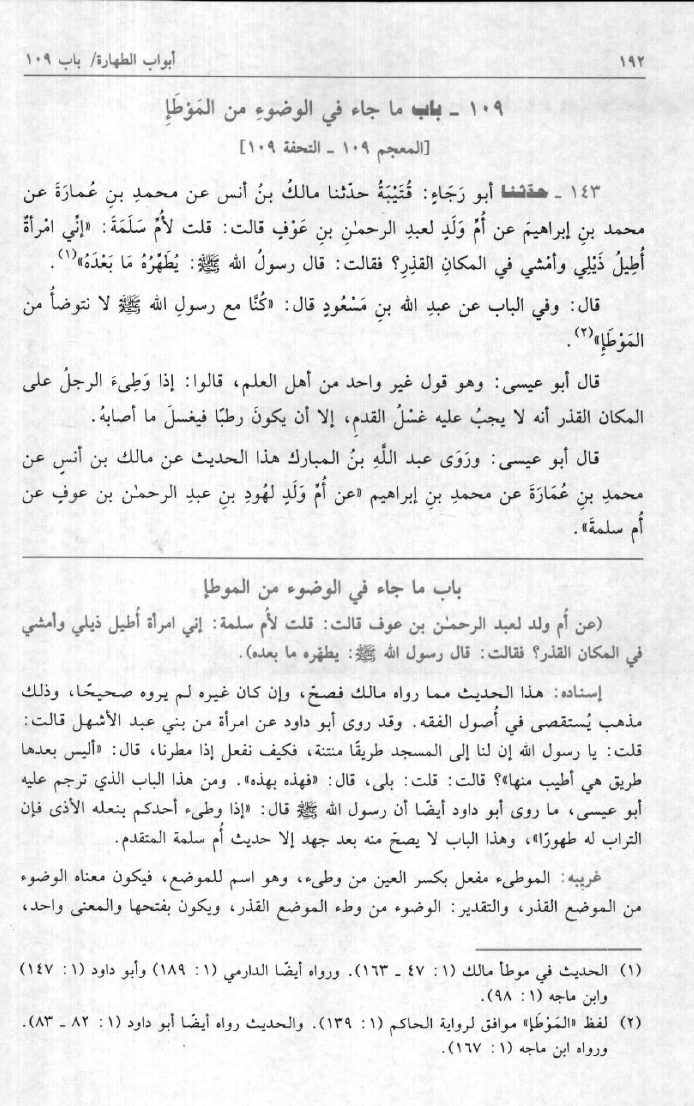 ١٩٢
أبواب الطهارة/ باب ١٠٩
١٠٩ ـ باب ما جاء في الوضوءِ من المَوْطَإِ
[المعجم ١٠٩ ـ التحفة ١٠٩]
١٤٣ ـ حدّثنا أبو رَجَاءٍ: قُتَيْبَةُ حدّثنا مالكُ بنُ أنس عن محمدِ بنِ عُمارَةَ عن
محمد بنِ إبراهيمَ عن أُمِّ وَلَدٍ لعبدِ الرحمٰنِ بنِ عَوْفٍ قالت: قلت لأُمِّ سَلَمَةَ: «إنِّي امْرأةٌ
أُطِيلُ ذَيْلِي وأمْشي في المكانِ القذِرِ؟ فقالت: قال رسولُ الله ﷺ: يُطَهِّرُهُ مَا بَعْدَهُ»(١).
قال: وفي الباب عن عبدِ الله بنِ مَسْعُودٍ قال: «كُنَّا مع رسولِ الله ﷺ لا نتوضأُ من
المَوْطَإِ»(٢).
قال أبو عيسى: وهو قول غير واحد من أهل العلم، قالوا: إذا وَطِىءَ الرجلُ على
المكان القذر أنه لا يجبُ عليه غسْلُ القدمِ، إلا أن يكونَ رطبًا فيغسلَ ما أصابهُ.
قال أبو عيسى: ورَوَى عبد اللَّهِ بنُ المبارك هذا الحديث عن مالك بن أنسٍ عن
محمدِ بنِ عُمَارَةَ عن محمدِ بنِ إبراهيم «عن أُمِّ وَلَدٍ لهُودِ بنِ عبدِ الرحمٰن بن عوفٍ عن
أُم سلمةَ».
باب ما جاء في الوضوء من الموطإ
(عن أُم ولد لعبد الرحمٰن بن عوف قالت: قلت لأُم سلمة: إني امرأة أُطيل ذيلي وأمشي
في المكان القذر؟ فقالت: قال رسول الله ﷺ: يطهّره ما بعده).
إسناده: هذا الحديث مما رواه مالك فصحّ، وإن كان غيره لم يروه صحيحًا، وذلك
مذهب يُستقصى في أُصول الفقه. وقد روى أبو داود عن امرأة من بني عبد الأشهل قالت:
قلت: يا رسول الله إن لنا إلى المسجد طريقًا منتنة، فكيف نفعل إذا مطرنا، قال: «أليس بعدها
طريق هي أطيب منها»؟ قالت: قلت: بلى، قال: «فهذه بهذه». ومن هذا الباب الذي ترجم عليه
أبو عيسى، ما روى أبو داود أيضًا أن رسول الله ﷺ قال: «إذا وطىء أحدكم بنعله الأذى فإن
التراب له طهورًا»، وهذا الباب لا يصحّ منه بعد جهد إلا حديث أُم سلمة المتقدم.
غريبه: الموطىء مفعل بكسر العين من وطىء، وهو اسم للموضع، فيكون معناه الوضوء
من الموضع القذر، والتقدير: الوضوء من وطء الموضع القذر، ويكون بفتحها والمعنى واحد،
(١) الحديث في موطأ مالك (١: ٤٧ ـ ١٦٣). ورواه أيضًا الدارمي (١: ١٨٩) وأبو داود (١: ١٤٧)
وابن ماجه (١: ٩٨).
(٢) لفظ «المَوْطَإِ» موافق لرواية الحاكم (١: ١٣٩). والحديث رواه أيضًا أبو داود (١: ٨٢ ـ ٨٣).
ورواه ابن ماجه (١: ١٦٧).